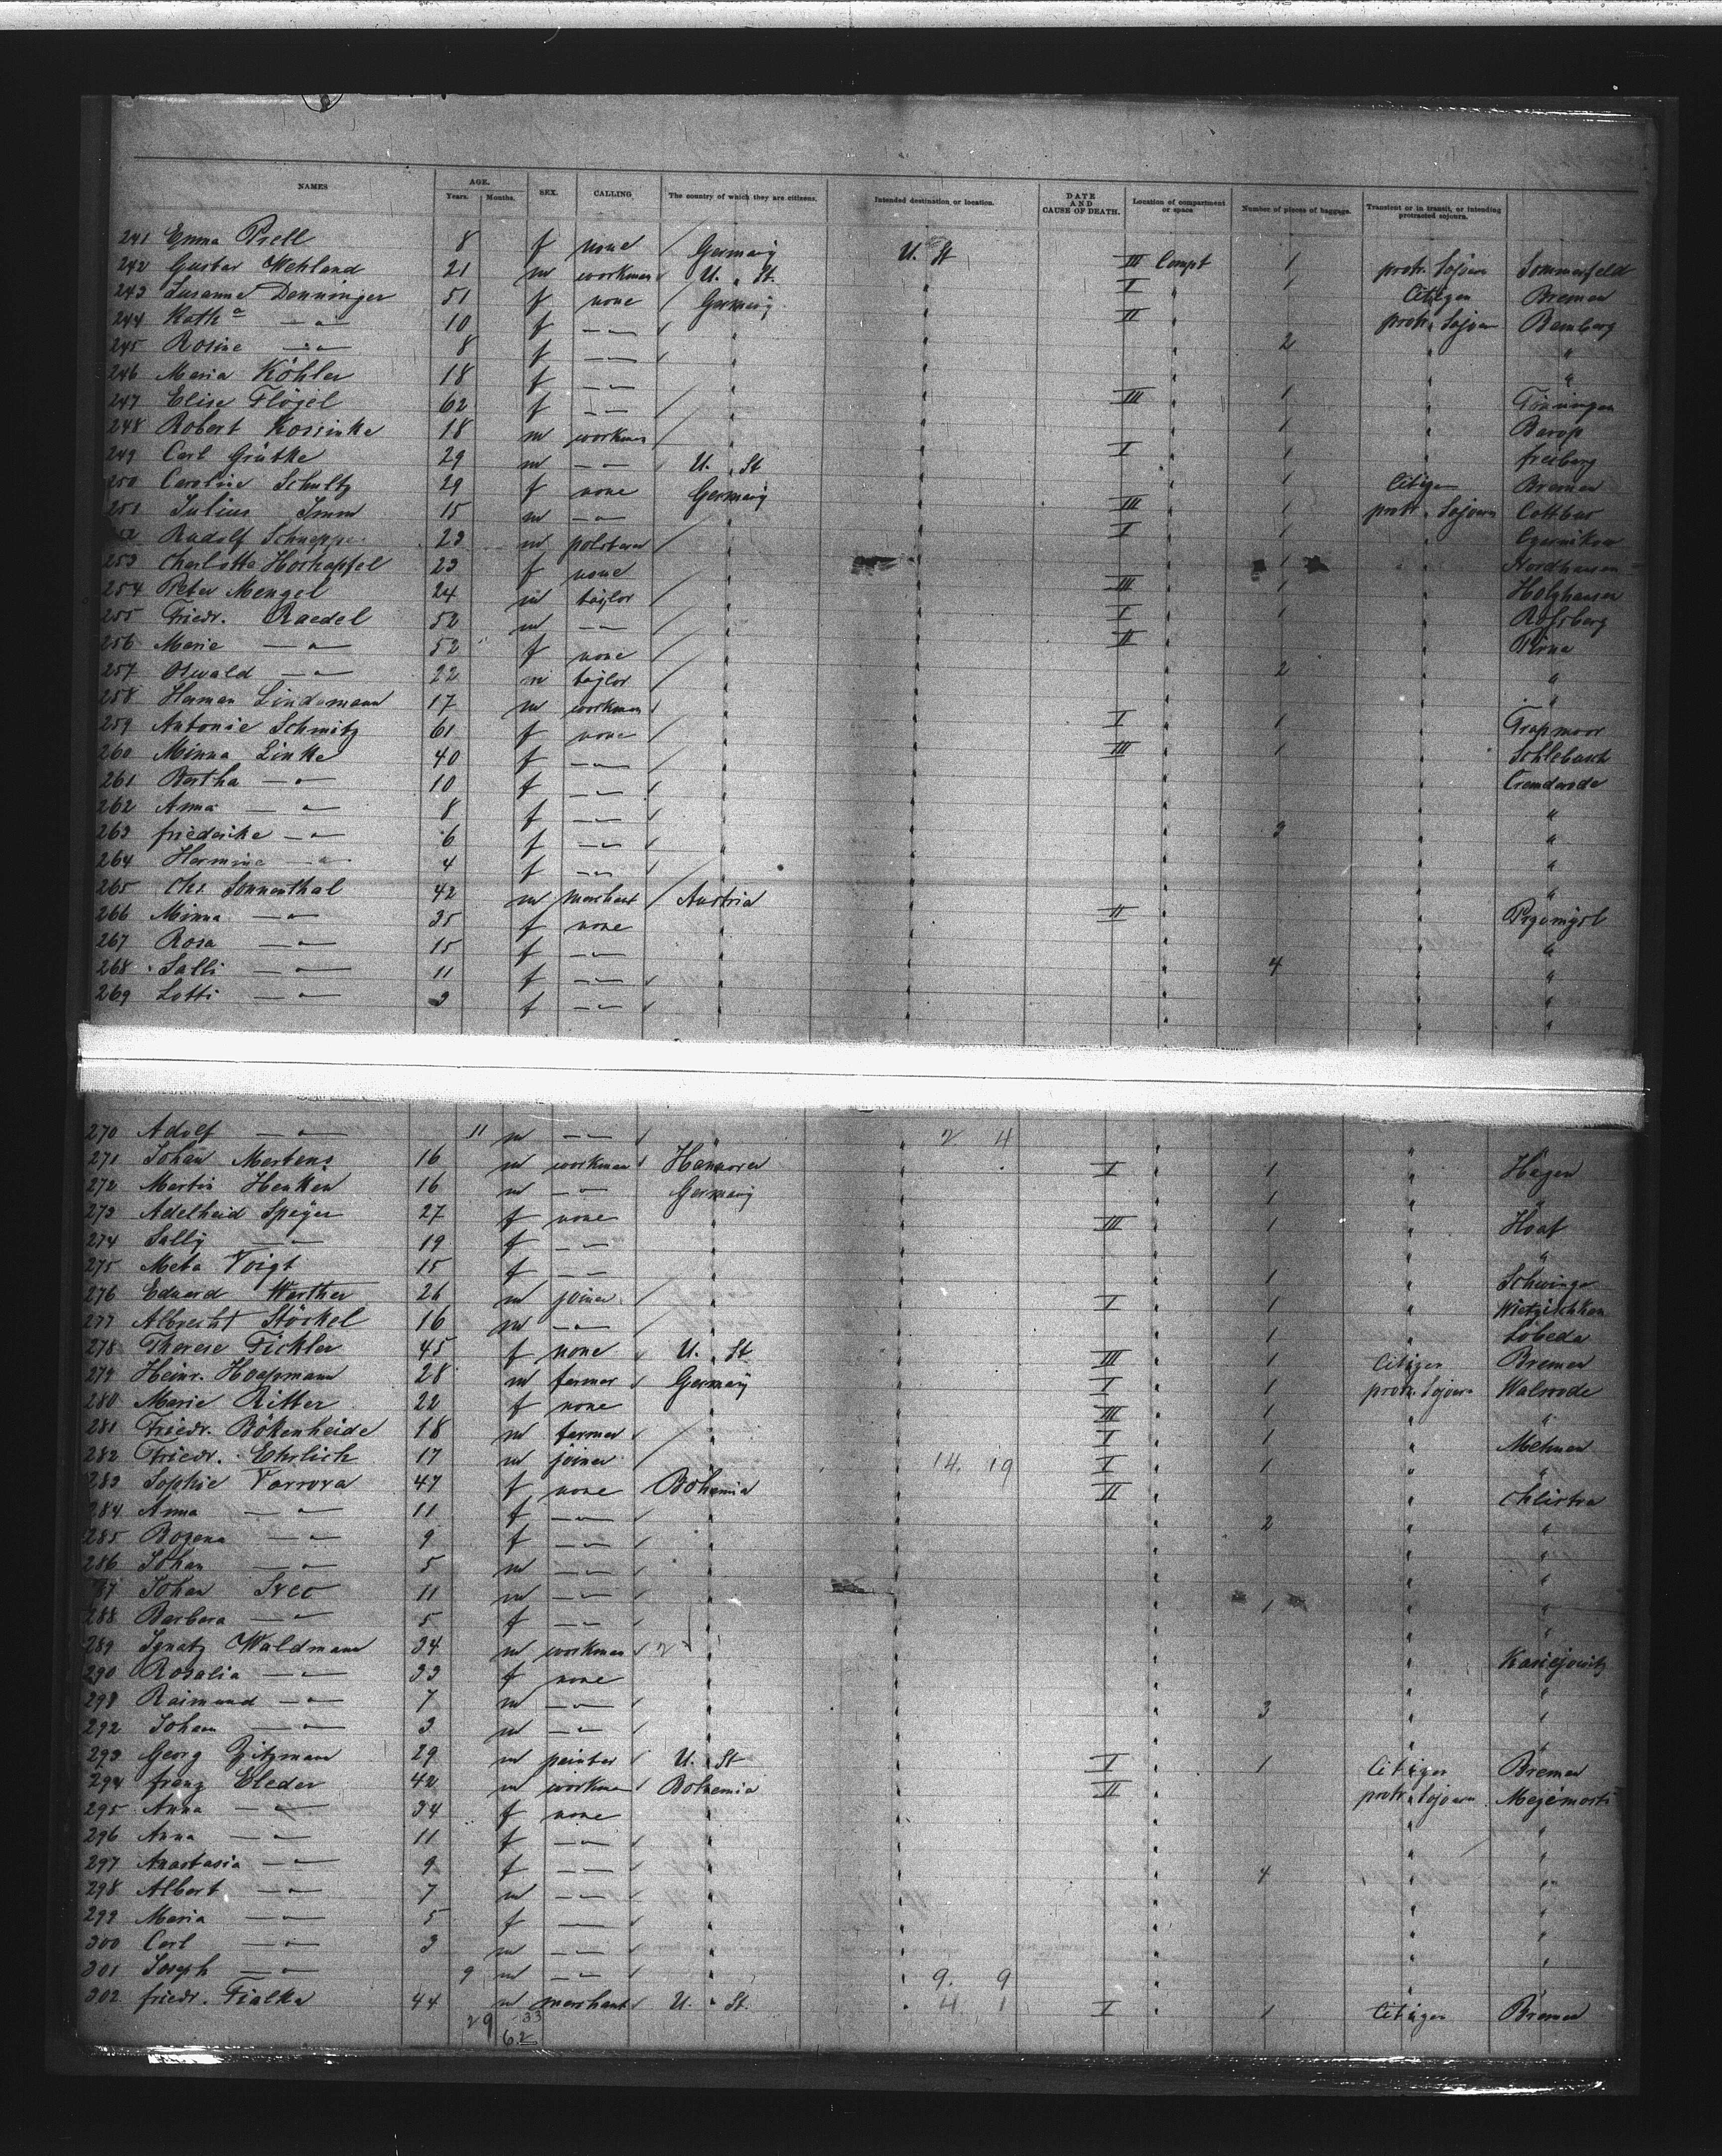 NAMES AGE. Years. Months. SEX. CALLING The country of which they are citizens. Intended destination or location. DATE AND CAUSE OF DEATH. Location of compartment or space Number of pieces of baggage. Transient or in transit, or intending protracted sojourn.
241 Emma Prell 8 f none / Germany U. St III Compt 1 protr. Sojourn Sommerfeld
242 Gustav Wehland 21 m workman U. St. I " 1 Citizen Bremen
243 Susanne Denninger 51 f none / Germany II " protr. Sojourn Bamberg
244 Kath a — " — 10 f — " — " " 2 " "
245 Rosine — " — 8 f — " — " " " "
246 Maria Köhler 18 f — " — " III " 1 "
247 Elise Flögel 62 f — " — / " " 1 " Barop
248 Robert Kossinke 18 m workman / " I " 1 " freiberg
249 Carl Grütke 29 m — " — U. St " 1 Citizen Bremen
250 Caroline Schultz 29 f none Germany III " 1 protr. Sojourn Cottbus
251 Julius Imm 15 m — " — " I " 1 "
Rudolf 23 m / " " 1 " Nordhausen
253 Charlotte Horhapfel 23 f none " III " 1 " Holzhausen
254 Peter Mengel 24 m taylor / " I " 1 " Rossberg
255 Friedr. Raedel 52 m — " — / " II " " Pirna
256 Marie — " — 52 f none / " " 2 " "
257 Oswald — " — 22 m taylor / " " " "
258 Herman Lindemann 17 m workman " I " 1 "
259 Antonie Schmitz 61 f none / " III " 1 " Schlebusch
260 Minna Linke 40 f — " — / " " "
261 Bertha — " — 10 f — " — " " " "
262 Anna — " — 8 f — " — " " 3 " "
263 friederike — " — 6 f — " — " " " "
264 Hermine — " — 4 f — " — " " " "
265 Chs. Sonnenthal 42 m merchant / Austria II " " Przemysl
266 Minna — " — 35 f none " " " "
267 Rosa — " — 15 f — " — " " 4 " "
268 Salli — " — 11 f — " — " " " "
269 Lotti — " — 3 f — " — " " " "
270 Adolf — " — 11 m — " — " 2 4 " "
271 Johan Mertens 16 m workman Hannover I " 1 " Hagen
272 Martin Henken 16 m — " — Germany " 1 " "
273 Adelheid Speyer 27 f none III " 1 " Hoaf
274 Sally — " — 19 f — " — " " " "
275 Meta Voigt 15 f — " — " " 1 " Schwinge
276 Eduard Werther 26 m joiner / " I " 1 "
277 Albrecht Stöckel 16 m — " — / " " 1 " Lobeda
278 Therese Fickler 45 f none U. St III " 1 Citizen Bremen
279 Heinr. Hoopmann 28 m farmer Germany I " 1 protr. Sojourn Walsrode
280 Marie Ritter 22 f none " III " 1 " "
281 Friedr. Bökenheide 18 m farmer " I " 1 "
282 Friedr. Ehrlich 17 m joiner / " 14. 19 I " 1 " "
283 Sophie Vorrova 47 f none Bohemia II " " Chlistra
284 Anna — " — 11 f — " — " " 2 " "
285 Bozena — " — 9 f — " — " " " "
286 Johan — " — 5 m — " — " " " "
87 Johan Svec 11 m — " — " " 1 " "
288 Barbara — " — 5 f — " — " " " "
289 Ignatz Waldmann 34 m workman 2 " "
290 Rosalia — " — 33 f none " " " "
291 Raimund — " — 7 m — " — " " 3 " "
292 Johann — " — 3 m — " — " " " "
293 Georg Zitzmann 29 m painter U. St I " 1 Citizen Bremen
294 franz Eleder 42 m workman Bohemia II " protr. Sojourn
295 Anna — " — 34 f none " " " "
296 Anna — " — 11 f — " — " " " "
297 Anastasia — " — 9 f — " — " " 4 " "
298 Albert — " — 7 m — " — " " " "
299 Maria — " — 5 f — " — " " " "
300 Carl — " — 3 m — " — " " " "
301 Joseph — " — 9 m — " — " 9. 9 " "
302 friedr. Fialka 44 m merchant U. St. 4 1 I " 1 Citizen Bremen
29 33
62